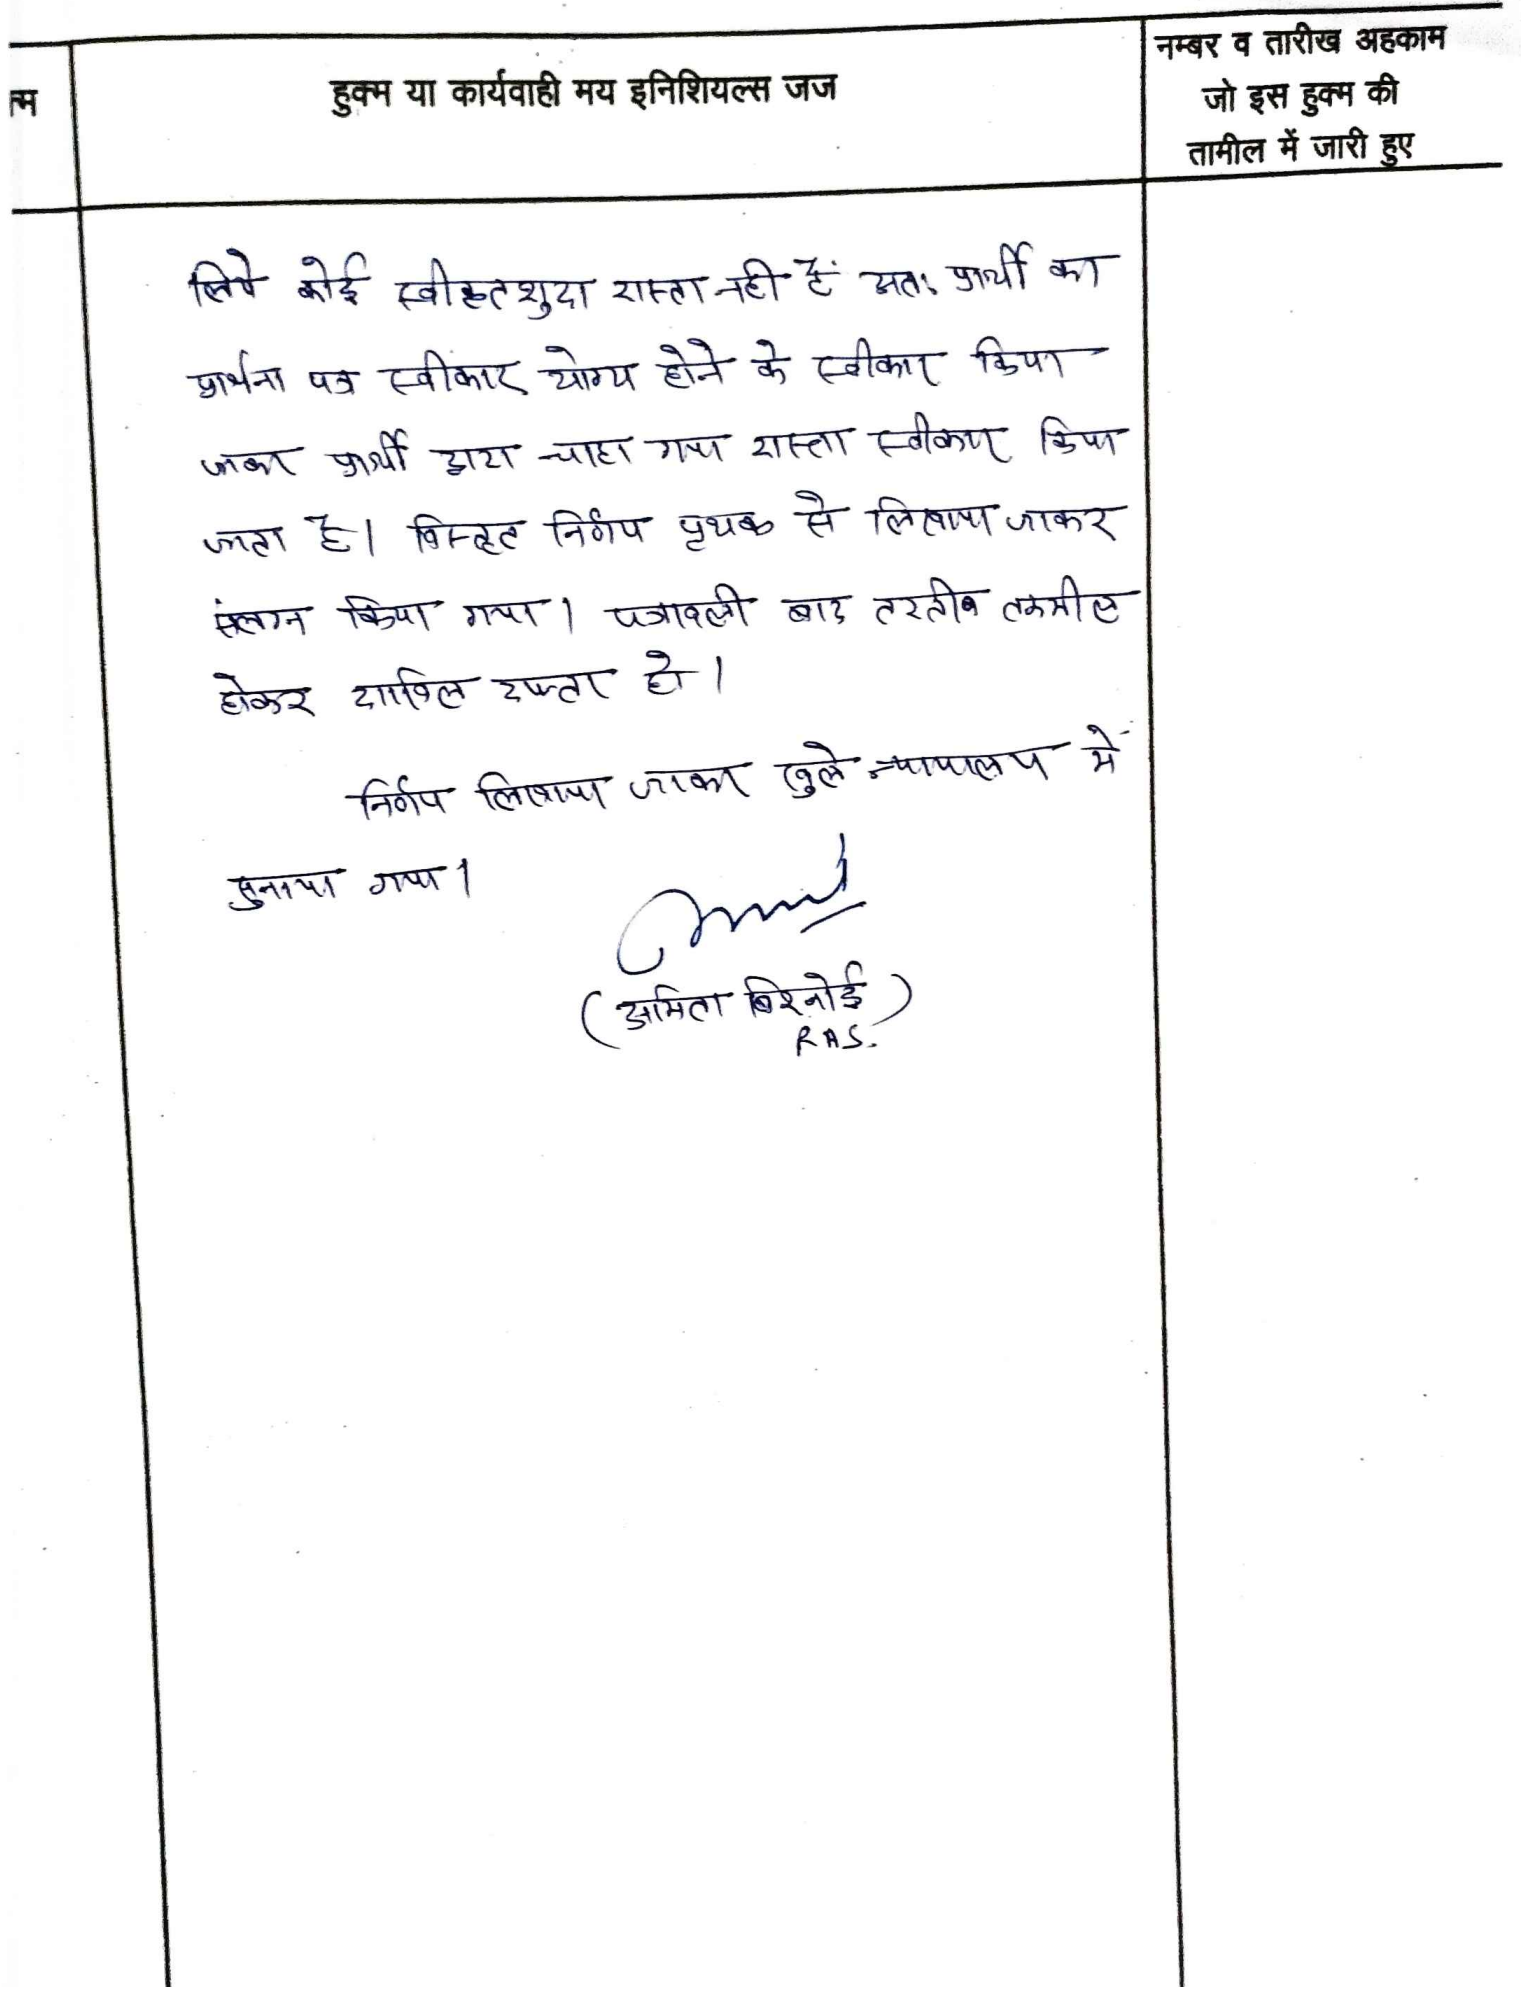 क्म
हुक्म या कार्यवाही मय इनिशियल्स जज
नम्बर व तारीख अहकाम
जो इस हुक्म की
तामील में जारी हुए
लिये कोई स्वीकृतशुदा रास्ता नही हैं अतः प्रार्थी का
प्रार्थना पत्र स्वीकार योग्य होने के स्वीकार किया
जाकर प्रार्थी द्वारा चाहा गया रास्ता स्वीकार किया
जाता है। विस्तृत निर्णय पृथक से लिखाया जाकर
संलग्न किया गया। पत्रावली बाद तरतीब तकमील
होकर दाखिल दफ्तर हो।
निर्णय लिखाया जाकर खुले न्यायालय में
सुनाया गया।
(अमिता बिश्नोई)
RAS.